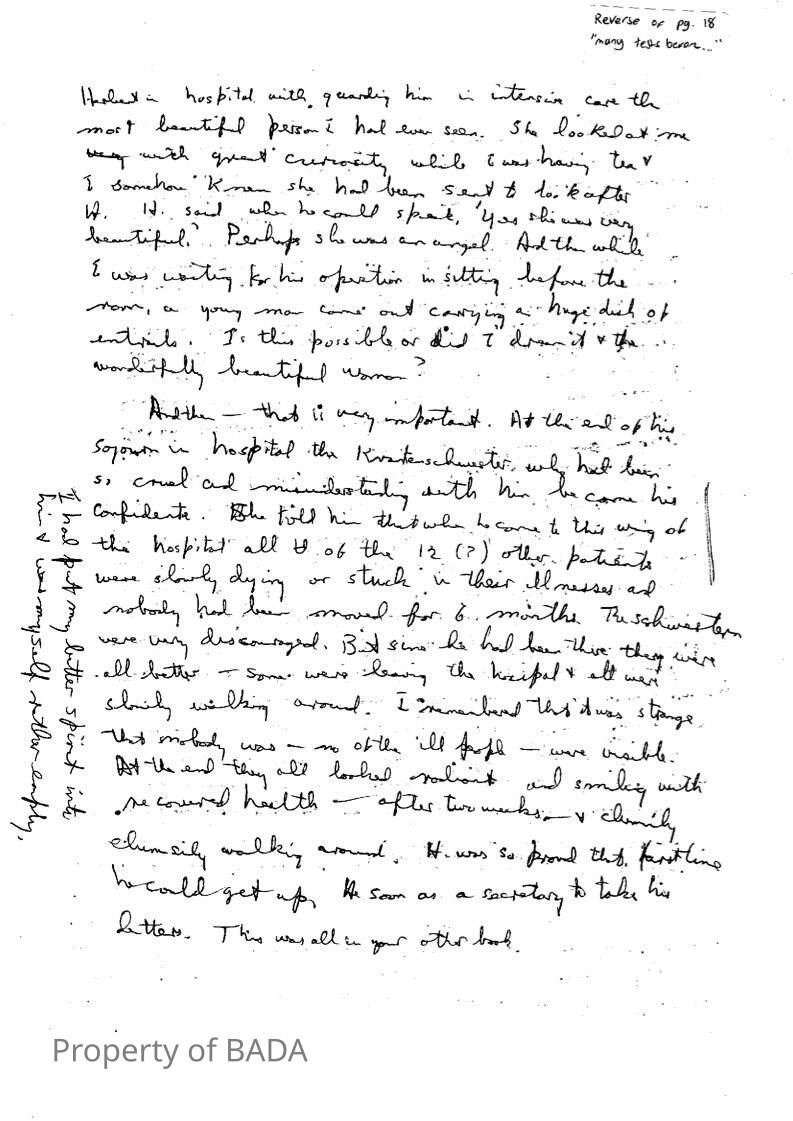 Reverse of pg. 18
"many tests before..."
Herbert in hospital with, guarding him in intensive care the
most beautiful person I had ever seen. She looked at me
with great curiosity while I was having tea &
I somehow knew she had been sent to look after
H. H. said when he could speak, "Yes she was very
beautiful." Perhaps she was an angel. And then while
I was waiting for his operation in sitting before the
room, a young man came out carrying a huge dish of
entrails. Is this possible or did I dream it & the
wonderfully beautiful woman?
And then — that is very important. At the end of his
sojourn in hospital the Krankenschwester, who had been
so cruel and misunderstanding with him, became his
confidente. She told him that when he came to this wing of
the hospital all of the 12 (?) other patients
were slowly dying or stuck in their illnesses and
nobody had been moved for 6 months. The schwestern
were very discouraged. But since he had been there they were
all better — some were leaving the hospital & all were
slowly walking around. I remembered that it was strange
that nobody was — no of the ill people — were visible.
At the end they all looked radiant and smiling with
recovered health — after two weeks — & clumily
clumsily walking around. H. was so proud that first time
he could get up, He soon as a secretary to take his
letters. This was all in your other book.
I had put my better spirit into
him & was myself rather empty.
Property of BADA